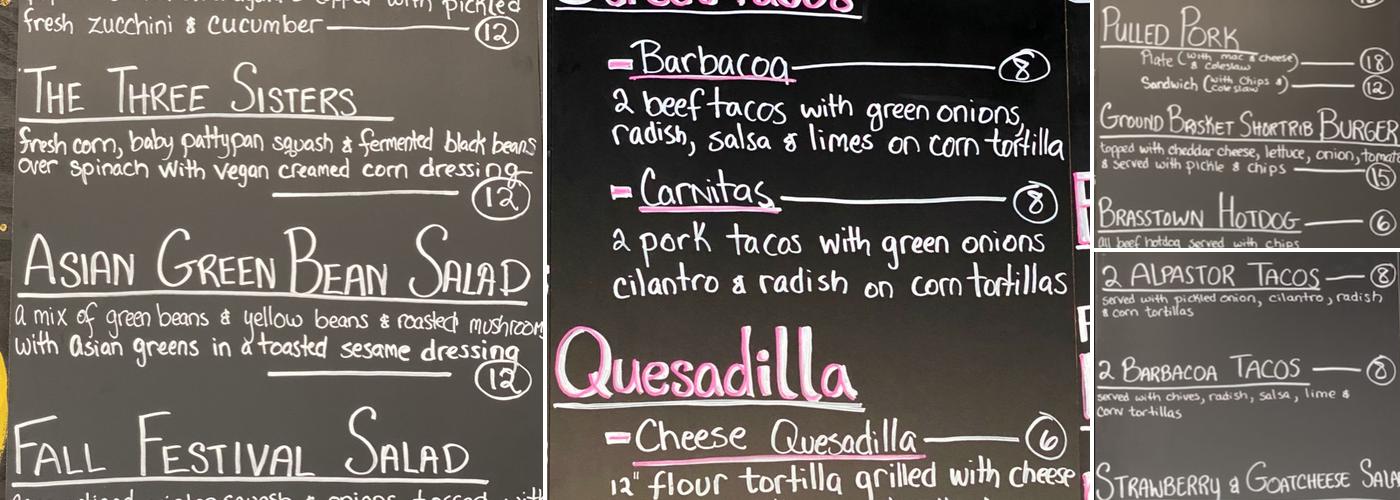 fresh zucchini & cucumber 12
THE THREE SISTERS
fresh corn, baby pattypan squash & fermented black beans
over spinach with vegan creamed corn dressing
12
ASIAN GREEN BEAN SALAD
a mix of green beans & yellow beans & roasted mushroom
with asian greens in a toasted sesame dressing
12
FALL FESTIVAL SALAD
Barbacoa 8
2 beef tacos with green onions,
radish, salsa & limes on corn tortilla
Carnitas 8
2 pork tacos with green onions
cilantro & radish on corn tortillas
Quesadilla
Cheese Quesadilla 6
12" flour tortilla grilled with cheese
PULLED PORK
Plate (with mac & cheese) 18
& coleslaw
Sandwich (with chips &) 12
coleslaw
GROUND BRISKET SHORTRIB BURGER
topped with cheddar cheese, lettuce, onion, tomato
& served with pickle & chips 15
BRASSTOWN HOTDOG 6
all beef hotdog served with chips
2 ALPASTOR TACOS 8
served with pickled onion, cilantro, radish
& corn tortillas
2 BARBACOA TACOS 8
served with chives, radish, salsa, lime &
corn tortillas
STRAWBERRY & GOATCHEESE SALA